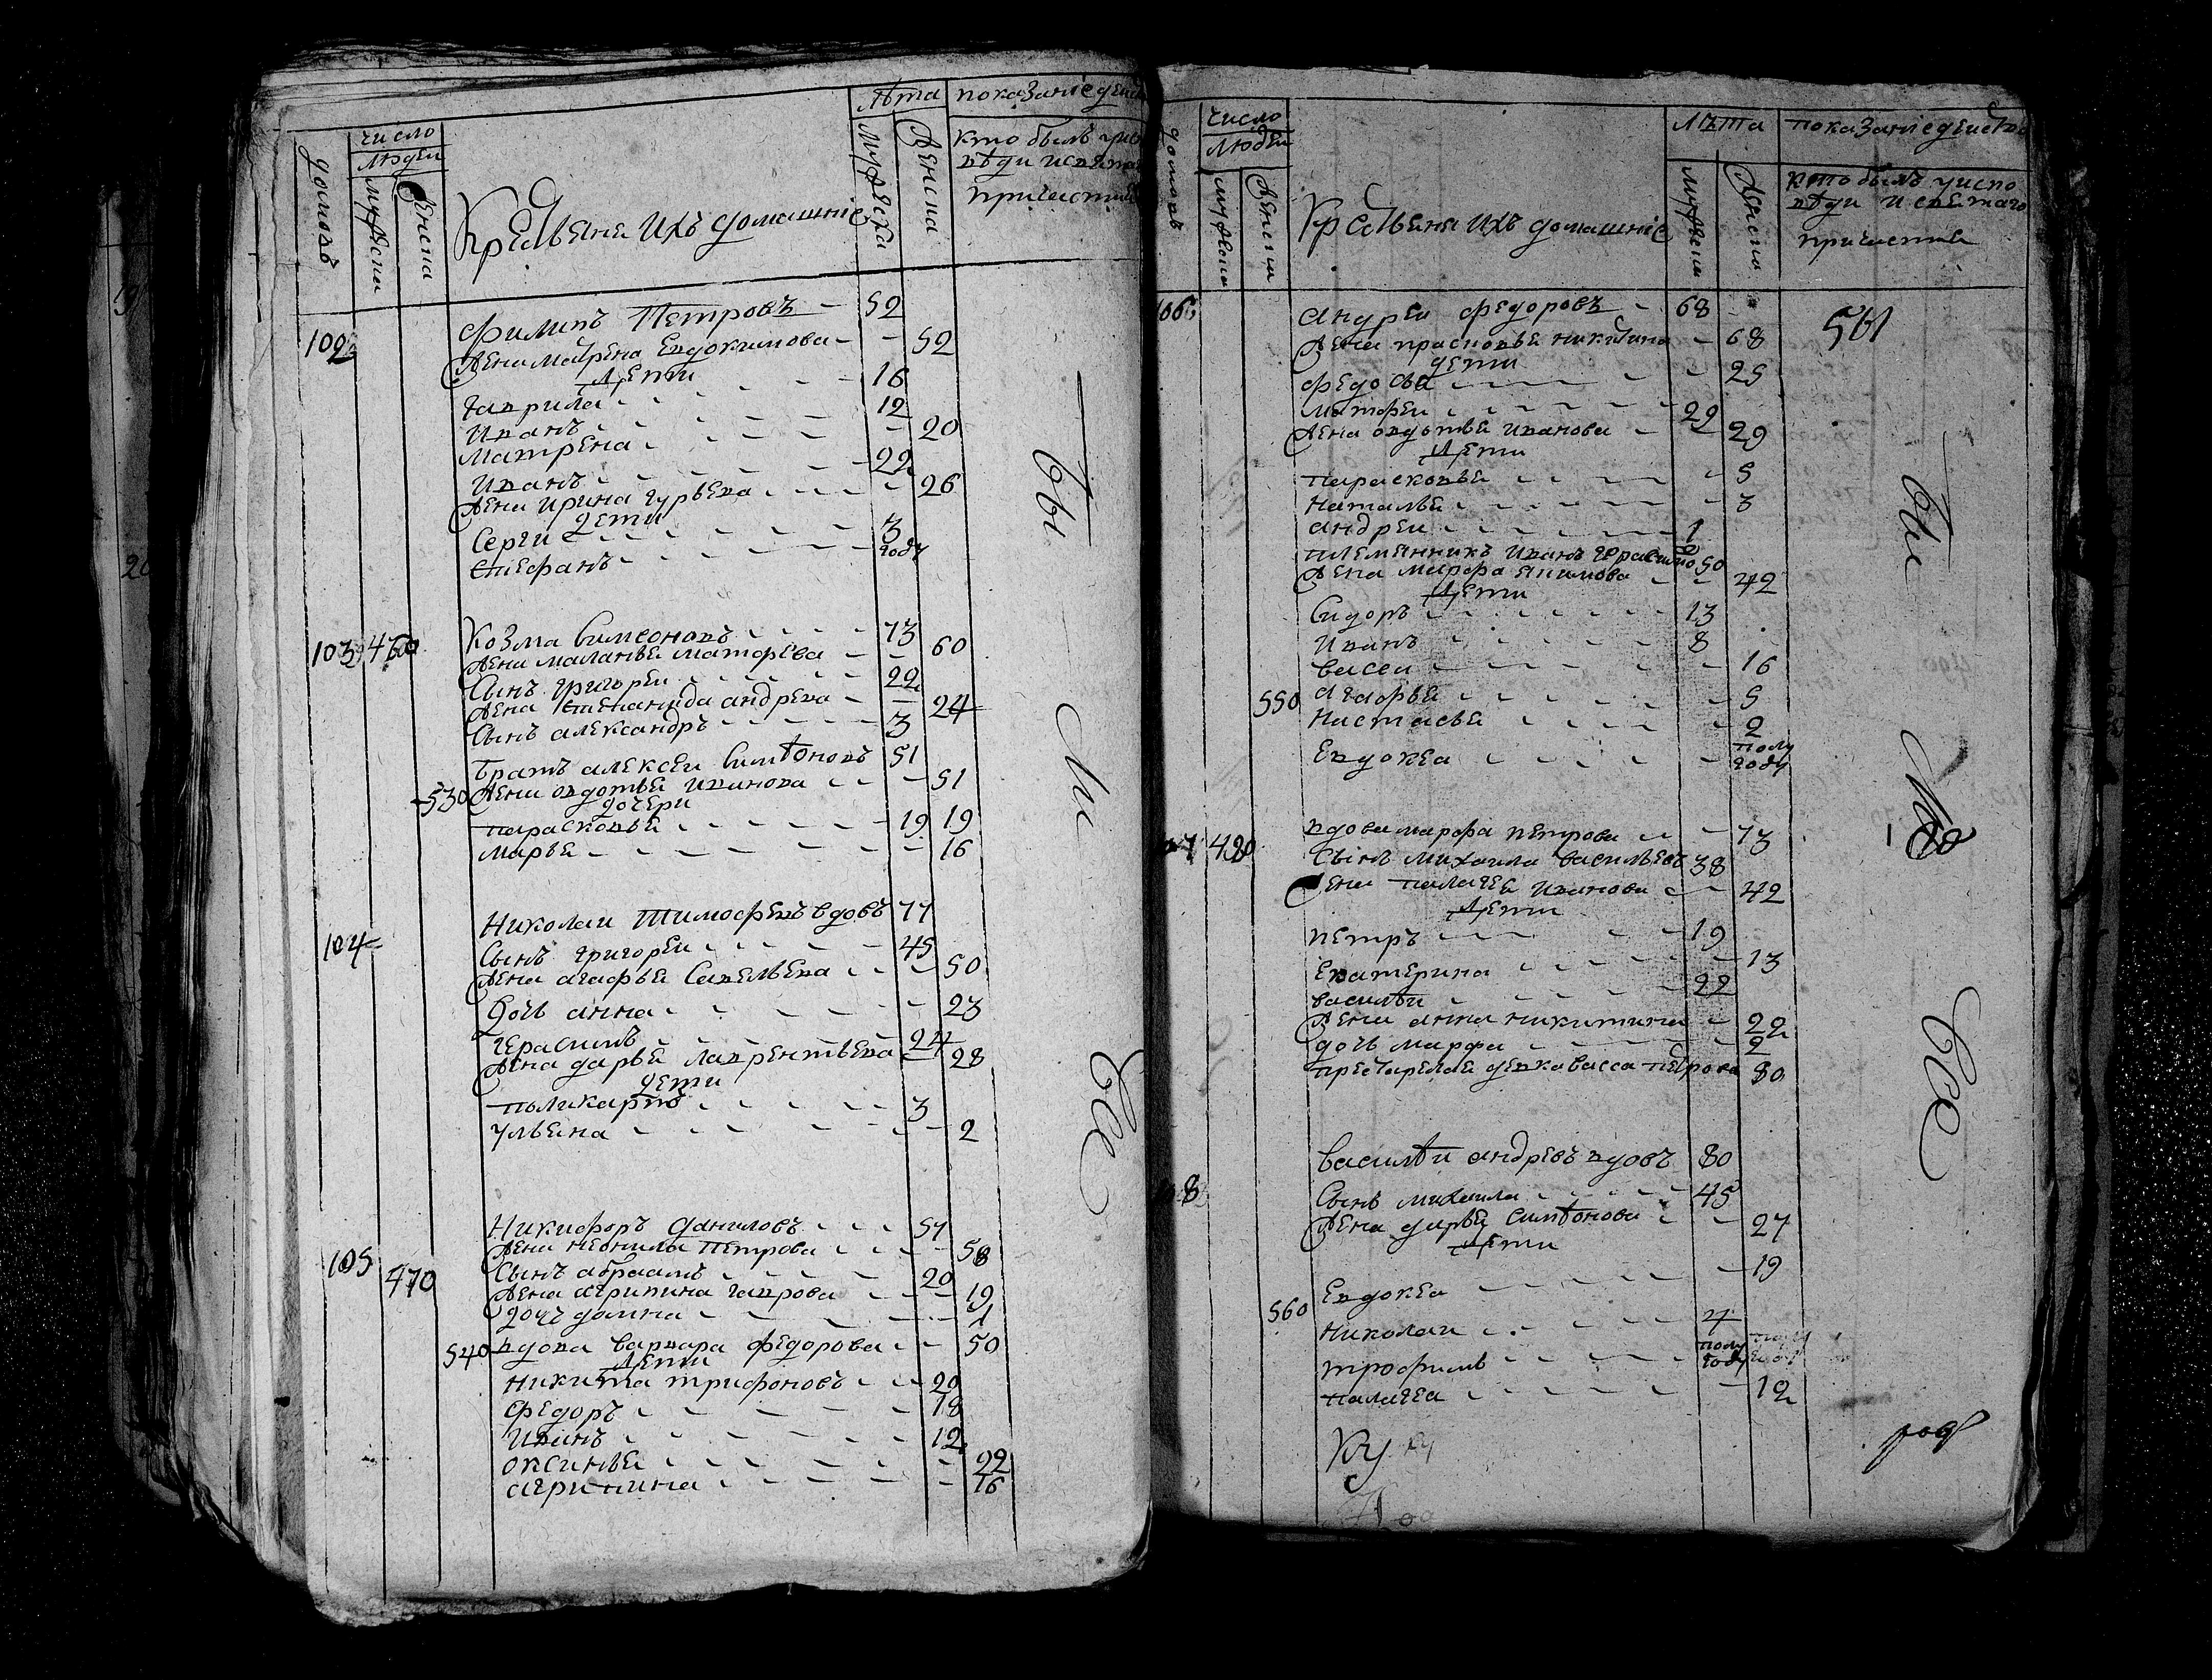 домовъ
число
людей
мужеска
женска
Крестьяне ихъ домашние
лѣта
мужеска
женска
показание
кто былъ
вѣди исвята
причастия
102
Филипъ Петровъ 52
жена матрена Евдокимова 52
дети
гаврила 16
Иванъ 12
матрена 20
Иванъ 22
жена ирина гурьева 26
дети
Серги 3
стефанъ году
103 460
Козма Симеоновъ 73
жена маланья матфева 60
Сынъ григореи 22
жена степанида андрева 24
Сынъ александръ 3
братъ алексеи Симѣоновъ 51
530 жена овдотья иванова 51
дочери
парасковья 19 19
марья 16
104
Николаи Тимофевъ вдовъ 77
Сынъ григореи 45
жена агафья Савельева 50
дочь анна 23
герасимъ 24
жена дарья лаврентьева 28
дети
поликарпъ 3
ульяна 2
105 470
Никифоръ даниловъ 57
жена неонила петрова 58
Сынъ абраамъ 20
жена агрипина гаврова 19
дочь домна 1
540 вдова варвара федорова 50
дети
никита трифоновъ 20
Федоръ 18
Иванъ 12
оксинья 22
агрипина 16
бы
ли
все
домовъ
число
людей
мужеска
женска
Крестьяня ихъ домашние
лѣта
мужеска
женска
показание действ
кто былъ уиспо
вѣди и святаго
причастия
561
106
андреи федоровъ 68
жена прасковья никитина 68
дети
федосья 25
матфеи 29
жена овдотья иванова 29
дети
парасковья 5
наталья 3
андреи 1
племянникъ иванъ герасимо 50
жена марфа якимова 42
дети
Сидоръ 13
Иванъ 8
васса 16
550 агафья 5
настасья 2
Евдокея полу
году
107 480
вдова марфа петрова 73
Сынъ михаила васильевъ 38
жена палагея иванова 42
дети
петръ 19
Екатерина 13
василѣи 22
жена анна никитина 22
дочь марфа 2
престарелая девка васса петрова 80
108
василѣи андревъ вдовъ 80
Сынъ михаила 45
жена дарья симѣонова 27
дети
Евдокея 19
560
николаи 4
трофимъ полу
году
палагея 12
бы
ли
все